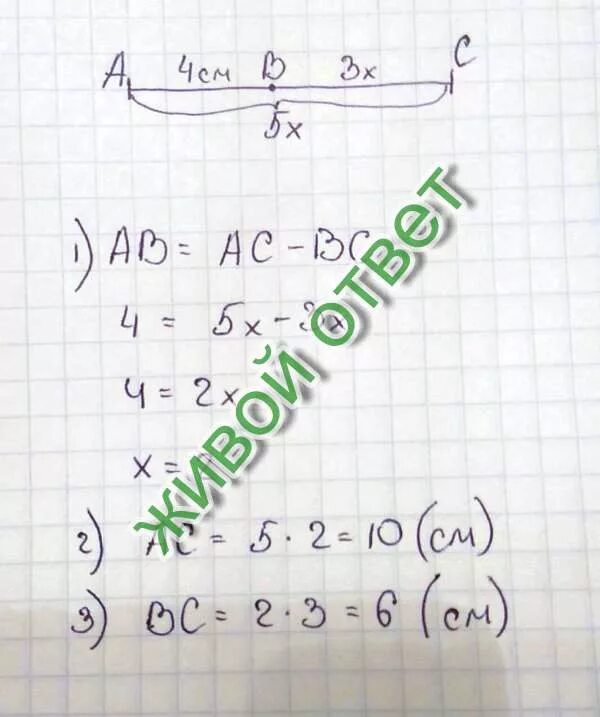 A 4см B 3x C
5x
1) AB = AC - BC
4 = 5x - 3x
4 = 2x
x =
2) AC = 5 · 2 = 10 (см)
3) BC = 2 · 3 = 6 (см)
ЖИВОЙ ОТВЕТ